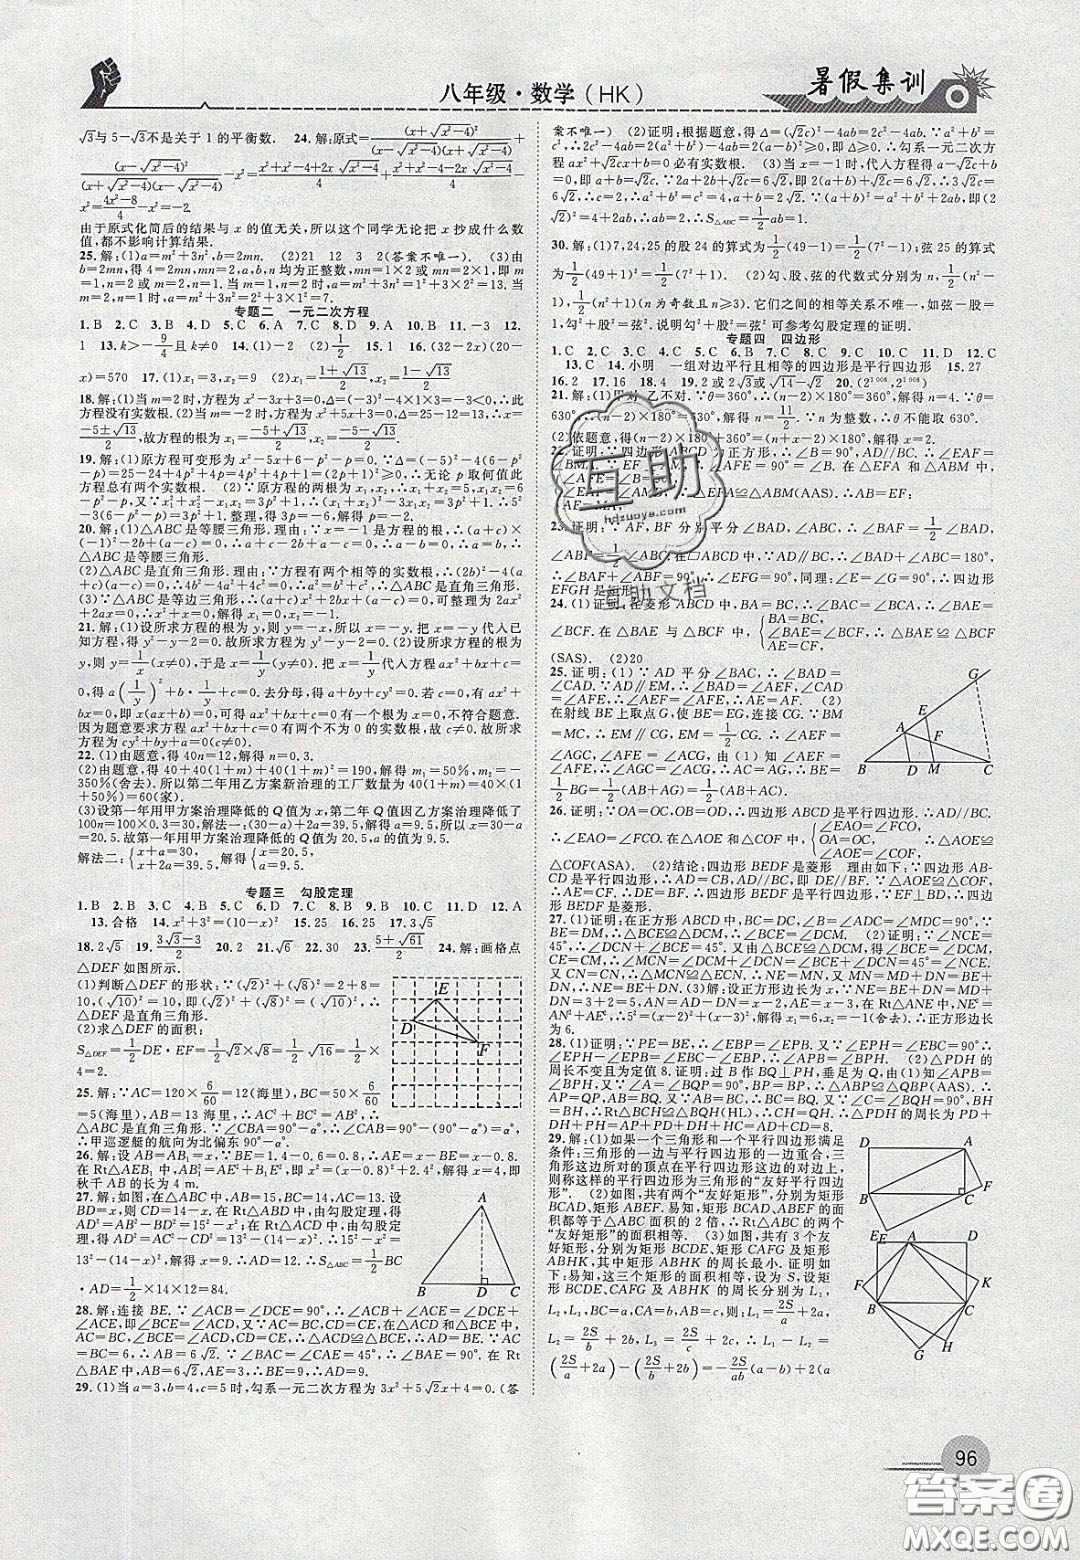 八年级·数学(HK)
暑假集训
√3与5-√3不是关于1的平衡数. 24.解:原式=(x+√(x²-4))²/((x+√(x²-4))(x-√(x²-4)))+
(x-√(x²-4))²/((x+√(x²-4))(x-√(x²-4)))-x²=(x²+x²-4+2x√(x²-4))/4+(x²+x²-4-2x√(x²-4))/4-
x²=(4x²-8)/4-x²=-2.
由于原式化简后的结果与x的值无关,所以这个同学无论把x抄成什么数
值,都不影响计算结果.
25.解:(1)a=m²+3n²,b=2mn. (2)21 12 3 2(答案不唯一). (3)由
b=2mn,得4=2mn,mn=2,a,b,n均为正整数,mn=1×2或mn=2×1,即m
=1,n=2或m=2,n=1,a=m²+3n²=1²+3×2²=13或a=m²+3n²=2²+3×1²=7.
专题二 一元二次方程
1.B 2.C 3.B 4.D 5.C 6.A 7.C 8.D 9.A 10.B 11.-3 12.
1 13.k>-9/4且k≠0 14.(1)-2 (2) 15.1 16.(32-2x)(20-
x)=570 17.(1)x₁=3,x₂=9 (2)x₁=(1+√13)/2,x₂=(1-√13)/2
18.解:(1)当m=3时,Δ=b²-4ac=2²-4×1×3=-8<0,∴此
方程没有实数根. (2)当m=-3时,方程变为x²+5x+3=0,Δ=25-12=13,x=
(-5±√13)/2,故方程的根为x₁=(-5+√13)/2,x₂=(-5-√13)/2.
19.解:(1)原方程可变形为x²-5x+6-p²-p=0.∵Δ=(-5)²-4(6-p²
-p)=25-24+4p²+4p=4p²+4p+1=(2p+1)²≥0,∴无论p取何值此
方程总有两个实数根. (2)∵原方程的两根为x₁、x₂,∴x₁+x₂=5,x₁x₂=6-
20.解:(1)△ABC是等腰三角形.理由:∵x=-1是方程的根,∴(a+c)×
(-1)²-2b+(a-c)=0,∴a+c-2b+a-c=0,∴a-b=0,∴a=b,
∴△ABC是等腰三角形.
(2)△ABC是直角三角形.理由:∵方程有两个相等的实数根,∴(2b)²-
4(a+c)(a-c)=0,∴4b²-4a²+4c²=0,∴a²=b²+c²,∴△ABC是直角三角
形. (3)∵△ABC是等边三角形,∴(a+c)x²+2bx+(a-c)=0,可整理为2ax²
+2ax=0,∴x²+x=0,解得x₁=0,x₂=-1.
21.解:(1)设所求方程的根为y,则y=-x,所以x=-y.把x=-y代入已
知方程,得y²-y-2=0.故所求方程为y²-y-2=0. (2)设所求方程的根为
y,则y=1/x(x≠0),于是x=1/y(y≠0),把x=1/y代入方程ax²+bx+c=
0,得a(1/y)²+b·1/y+c=0.去分母,得a+by+cy²=0.若c=0,有ax²+bx=
0,即方程ax²+bx+c=0有一个根为0,不符合题意.
因为题意要求方程ax²+bx+c=0有两个不为0的实数根,故c≠0.故所求
方程为cy²+by+a=0(c≠0).
22.(1)由题意,得40n=12,解得n=0.3.
(2)由题意,得40+40(1+m)+40(1+m)²=190,解得m₁=50%,m₂=-
350%(舍去).所以第二年用乙方案新治理的工厂数量为40(1+m)=40×(1
+50%)=60(家).
(3)设第一年用甲方案治理降低的Q值为x,第二年Q值因乙方案治理降低了
100n=100×0.3=30.解法一:(30-a)+2a=39.5,解得a=9.5.所以x=30-a
=20.5.故第一年用甲方案治理降低的Q值为20.5,a的值为9.5.
解法二:{x+a=30, x+2a=39.5. 解得{x=20.5, a=9.5.
专题三 勾股定理
1.B 2.D 3.B 4.C 5.D 6.C 7.D 8.B 9.C 10.D 11.D 12.A
13.合格 14.x²+3²=(10-x)² 15.25 16.25 17.3√5
18.2√5 19.(3√3-3)/2 20.2 21.√6 22.30 23.(5+√61)/2 24.解:画格点
△DEF如图所示.
(1)判断△DEF的形状:∵(√2)²+(√8)²=2+8=
10,(√10)²=10,即(√2)²+(√8)²=(√10)²,
∴△DEF是直角三角形.
(2)求△DEF的面积:
S△DEF=1/2DE·EF=1/2√2×√8=1/2√16=1/2×
4=2.
E
D
F
25.解:∵AC=120×6/60=12(海里),BC=50×
6/60=5(海里),AB=13海里,∴AC²+BC²=AB²,
∴△ABC是直角三角形.∵∠CBA=90°-α°,∴∠CAB=90°-(90°-α°)=α°,
∴甲巡逻艇的航向为北偏东90°-α°.
26.解:设AB=AB₁=x,由题意可得出:B₁E=1.4-0.6=0.8,∴AE=x-0.8.
在Rt△AEB₁中,∵AE²+B₁E²=AB₁²,∴(x-0.8)²+2.4²=x²,解得x=4,即
秋千AB的长为4m.
27.解:如图,在△ABC中,AB=15,BC=14,AC=13,设
BD=x,则CD=14-x.在Rt△ABD中,由勾股定理,得
AD²=AB²-BD²=15²-x²;在Rt△ACD中,由勾股定
理,得AD²=AC²-CD²=13²-(14-x)²,∴15²-x²=
13²-(14-x)²,解得x=9.∴AD=12.∴S△ABC=1/2BC
·AD=1/2×14×12=84.
A
B D C
28.解:连接BE.∵∠ACB=∠DCE=90°,∴∠ACB+∠ACE=∠DCE+
∠ACE,即∠BCE=∠ACD.又∵BC=AC,DC=EC,∴在△ACD和△BCE中,
AC=BC,∠ACD=∠BCE,DC=EC,∴△ACD≌△BCE,∴AD=BE.∵AC=
BC=6,∴AB=6√2.∵∠BAC=∠CAE=45°,∴∠BAE=90°.在Rt
△BAE中,AB=6√2,AE=3,∴BE=9,∴AD=9.
29.(1)当a=3,b=4,c=5时,勾系一元二次方程为3x²+5√2x+4=0.(答
案不唯一) (2)证明:根据题意,得Δ=(√2c)²-4ab=2c²-4ab.∵a²+b²=
c²,∴2c²-4ab=2(a²+b²)-4ab=2(a-b)²≥0,即Δ≥0,∴勾系一元二次方
程ax²+√2cx+b=0必有实数根. (3)当x=-1时,代入方程得a-√2c+b=
0,即a+b=√2c,∴2a+2b+√2c=6√2,即2(a+b)+√2c=6√2,∴3√2c=
6√2,∴c=2,∴a²+b²=c²=4,a+b=2√2.∵(a+b)²=a²+b²+2ab,即(2
√2)²=4+2ab,∴ab=2,∴S△ABC=1/2ab=1.
30.解:(1)7,24,25的股24的算式为1/2(49-1)=1/2(7²-1);弦25的算式
为1/2(49+1)=1/2(7²+1). (2)勾、股、弦的代数式分别为n,1/2(n²-1),
1/2(n²+1)(n为奇数且n≥3).它们之间的相等关系不唯一,如弦-股=1,
勾²+股²=弦²等,说明可参考勾股定理的证明.
专题四 四边形
1.C 2.C 3.A 4.B 5.C 6.C 7.C 8.C 9.C 10.D 11.D 12.C
13.C 14.小明 一组对边平行且相等的四边形是平行四边形 15.27
16.2 17.16 18.4 19.2或2√3或√14-√2 20.(2¹⁰⁰⁸,2¹⁰⁰⁸)
21.解:(1)甲对,乙不对.∵θ=360°,∴(n-2)×180°=360°,解得n=4.∵θ=
630°,∴(n-2)×180°=630°,解得n=11/2.∵n为整数,∴θ不能取630°.
(2)依题意,得(n-2)×180°+360°=(n+x-2)×180°,解得x=2.
23.证明:∵AF,BF分别平分∠DAB,∠ABC,∴∠BAF=1/2∠BAD,
∠ABF=1/2∠ABC.在□ABCD中,∵AD//BC,∴∠DAB+∠ABC=180°,
∴∠BAF+∠ABF=90°,∴∠EFG=90°.同理:∠E=∠G=90°,∴四边形
EFGH是
24.(1)证明:在菱形ABCD中,BA=BC,∴∠BAC=∠BCA,∴∠BAE=
∠BCF.在△BAE与△BCF中,{BA=BC, ∠BAE=∠BCF, AE=CF, ∴△BAE≌△BCF
(SAS). (2)20
25.证明:(1)∵AD平分∠BAC,∴∠BAD=
∠CAD.∵AD//EM,∴∠BAD=∠AEF,∠CAD=
∠AFE,∴∠AEF=∠AFE,∴AE=AF. (2)
在射线BE上取点G,使BE=EG,连接CG.∵BM
=MC,∴EM//CG,EM=1/2CG,∴∠AEF=
∠AGC,∠AFE=∠ACG,由(1)知∠AEF=
∠AFE,∴∠AGC=∠ACG,∴AG=AC,∴BE=
1/2BG=1/2(AB+AG)=1/2(AB+AC).
G
E
A
F
B D M C
26.证明:∵OA=OC,OB=OD,∴四边形ABCD是平行四边形,∴AD//BC,
∴∠EAO=∠FCO.在△AOE和△COF中,{∠EAO=∠FCO, OA=OC, ∠AOE=∠COF, ∴△AOE≌
△COF(ASA). (2)结论:四边形BEDF是菱形 理由如下:∵四边形AB-
CD是平行四边形,∴AD//BC,AD=BC,即DE//BF.∵△AOE≌△COF,∴
AE=CF,∴DE=BF,∴四边形BEDF是平行四边形,∵EF⊥BD,∴四边形
BEDF是菱形.
27.(1)证明:在正方形ABCD中,BC=DC,∠B=∠ADC=∠MDC=90°.
∵BN=DM,∴△BCN≌△DCM. (2)证明:∵∠NCE=
45°,∴∠DCN+∠BCN=45°,∴∠DCN+∠DCM得∠ECM=∠DCM,
CN=CM,∴∠DCN+∠DCM=45°=∠ECM,∴△ECM≌△ECN,∴ME=NE.
∵BN=DM,∴MA=MD+DA=MD+DN+NE=BE+
DN=3+2=5,∴AN=AD-DN=x-2,AE=x-3,在Rt△ANE中,NE²=
AN²+AE²,∴5²=(x-2)²+(x-3)²,解得x₁=6,x₂=-1(舍去).∴正方形边长
为6.
28.(1)证明:∵PE=BE,∴∠EBP=∠EPB.又∵∠EPH=∠EBC=90°,∴
∠EPH-∠EPB=∠EBC-∠EBP,即∠PBC=∠BPH.又∵AD//BC,
∴∠APB=∠PBC,∴∠APB=∠BPH. (2)△PDH的
周长不变且为定值8.证明:过B作BQ⊥PH,垂足为Q,由(1)知∠APB=
∠BPH.又∵∠A=∠BQP=90°,BP=BP,∴△ABP≌△QBP(AAS),∴
AP=QP,AB=BQ.又∵AB=BC,∴BC=BQ.又∵∠C=∠BQH=90°,BH=
BH,∴Rt△BCH≌△BQH(HL),∴CH=QH,∴△PDH的周长为PD+
DH+PH=AP+PD+DH+HC=AD+CD=8.
29.解:(1)如果一个三角形和一个平行四边形满足
条件:三角形的一边与平行四边形的一边重合,三
角形这边所对的顶点在平行四边形这边的对边上,
则称这样的平行四边形为三角形的“友好平行四边
形”. (2)如图,共有两个“友好矩形”,分别为矩形
BCAD,矩形ABEF.易知,矩形BCAD、ABEF的面
积都等于△ABC面积的2倍,∴△ABC的两个
“友好矩形”的面积相等. (3)如图,共有3个友
好矩形,分别为矩形BCDE、矩形CAFG及矩形
ABHK,其中矩形ABHK的周长最小.证明如
下:易知,这三个矩形的面积相等,设为S,设矩形
BCDE、CAFG及ABHK的周长分别为L₁,
L₂,L₃,BC=a,CA=b,AB=c,则:L₁=2S/a+2a,
L₂=2S/b+2b,L₃=2S/c+2c,∴L₁-L₂=
(2S/a+2a)-(2S/b+2b)=-2S/ab(a-b)+2(a
D A
B C F
E
E A D
F K
B C
G H
互助
hdzuoye.com
互助文档
96
答案圈
MXQE.COM